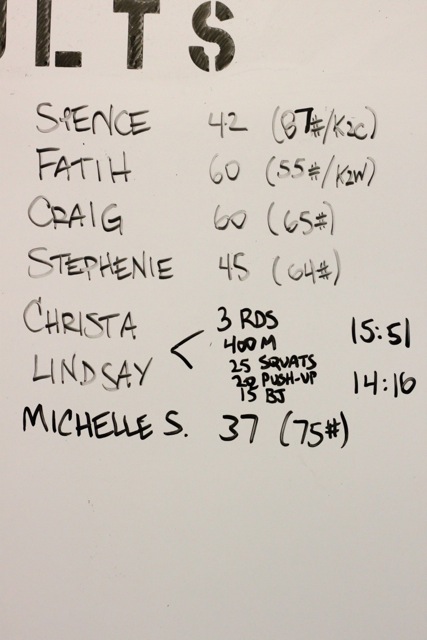 ULTS
SPENCE 42 (87#/K2C)
FATIH 60 (55#/K2W)
CRAIG 60 (65#)
STEPHENIE 45 (64#)
CHRISTA < 3 RDS 15:51
400 M
25 SQUATS
LINDSAY 20 PUSH-UP 14:16
15 BJ
MICHELLE S. 37 (75#)